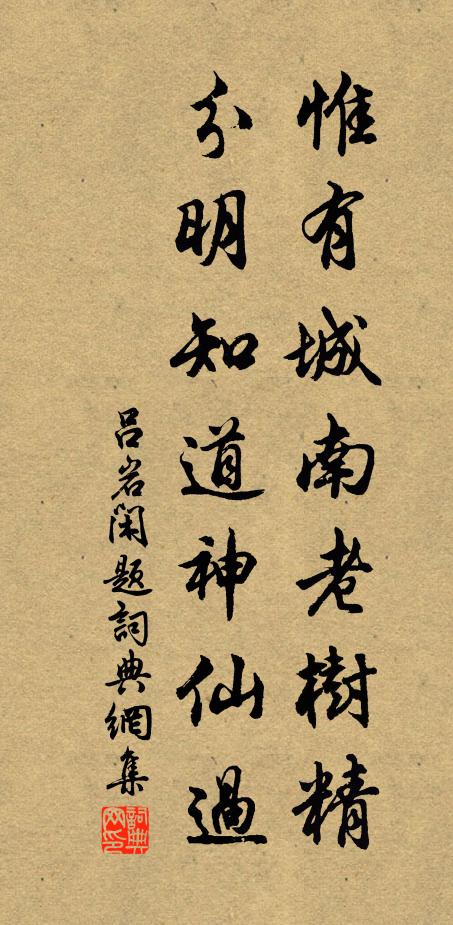 惟有城南老樹精
分明知道神仙過
呂岩閑題詞典網集
詞典网印